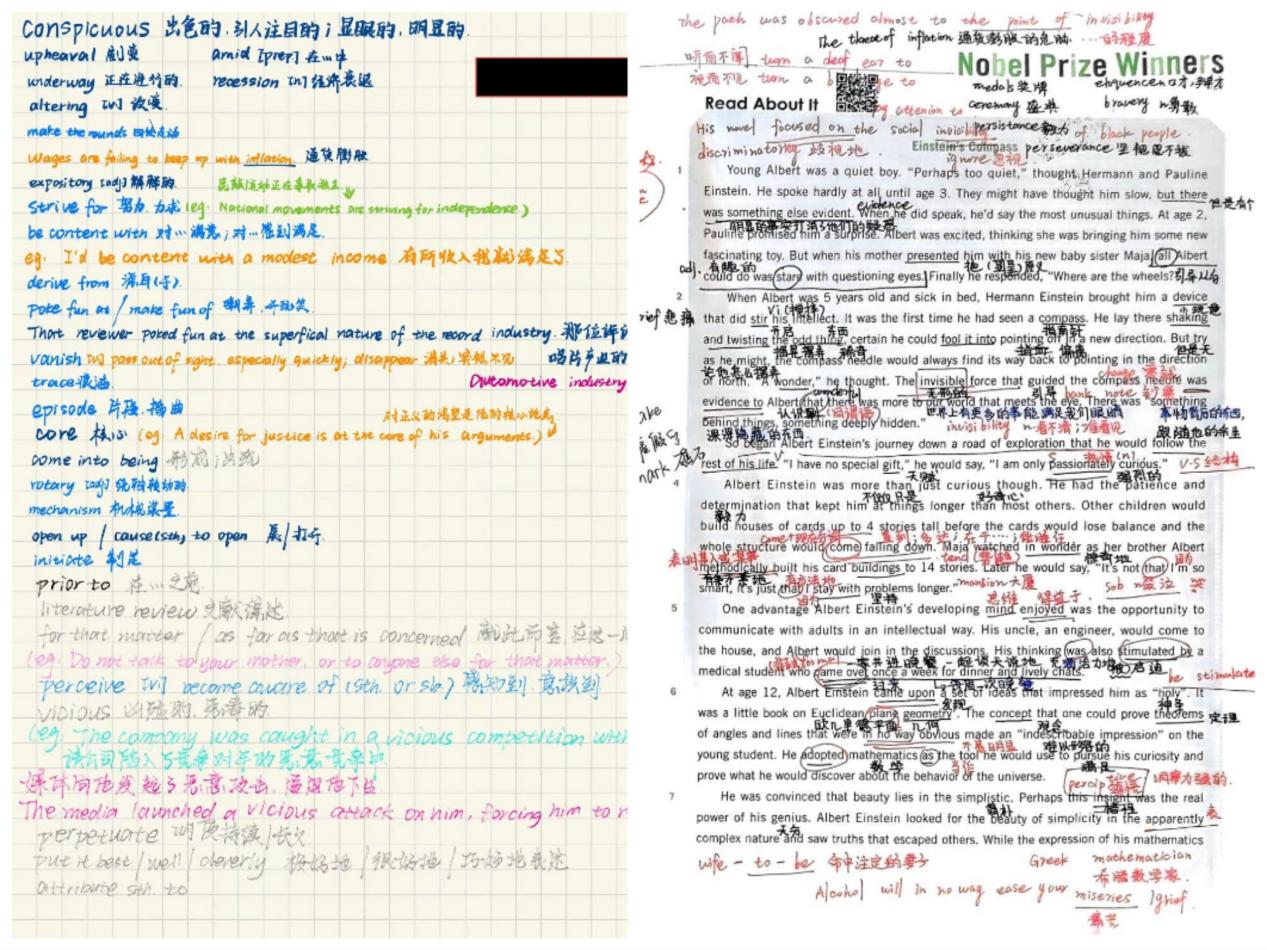 conspicuous 出色的,引人注目的;显眼的,明显的.
upheaval 剧变 amid [prep] 在…中
underway 正在进行的. recession [n] 经济衰退
altering [v] 改变
make the rounds
wages are failing to keep up with inflation 通货膨胀
expository [adj] 解释的.
strive for 努力.力求 (eg. National movements are striving for independence)
be content with 对…满意;对…感到满足.
eg. I'd be content with a modest income 有所收入我就满足了
derive from 源自(于).
poke fun at / make fun of 嘲弄,开玩笑
That reviewer poked fun at the superfical nature of the record industry. 那位评论
vanish [v] pass out of sight. especially quickly; disappear 消失;突然不见 唱片产业的
trace 痕迹. Automotive industry
episode 片段.插曲 对正义的渴望是他的核心论点
core 核心 (eg. A desire for justice is at the core of his arguments.)
come into being 形成;出现
rotary [adj] 绕轴转动的
mechanism 机械装置
open up / cause (sth) to open 展/打开.
initiate 制定
prior to 在…之前.
literature review 文献综述.
for that matter / as far as that is concerned 就此而言,在这一
(eg. Do not talk to your mother, or to anyone else for that matter.)
perceive [v] become aware of (sth. or sb.) 感知到.意识到
vicious 凶残的.恶毒的.
(eg. The company was caught in a vicious competition with
该公司陷入了与竞争对手的恶意竞争中
媒体向他发起了恶意攻击,逼迫他下台
The media launched a vicious attack on him, forcing him to r
perpetuate [v] 使持续/长久
put it best / well / cleverly 极好地/很好地/巧妙地表达
attribute sth. to
the path was obscured almost to the point of invisibility
The threat of inflation 通货膨胀的危胁. …的程度
听而不闻 turn a deaf ear to
视而不见 turn a
Nobel Prize Winners
medals 奖牌 eloquence n 口才,辩才
Read About It
attention to ceremony 盛典 bravery n 勇敢
persistance 毅力
His novel focused on the social invisibility of black people.
Einstein's Compass perseverance 坚韧不拔
discriminatorily 歧视地. ignore 忽视
1 Young Albert was a quiet boy. "Perhaps too quiet," thought Hermann and Pauline
Einstein. He spoke hardly at all until age 3. They might have thought him slow, but there
但是有个
evidence
was something else evident. When he did speak, he'd say the most unusual things. At age 2,
明显的事实打消了他们的疑惑
Pauline promised him a surprise. Albert was excited, thinking she was bringing him some new
fascinating toy. But when his mother presented him with his new baby sister Maja, all Albert
adj. 有趣的
could do was stare with questioning eyes. Finally he responded, "Where are the wheels?"
2 When Albert was 5 years old and sick in bed, Hermann Einstein brought him a device
vi (搅拌)
that did stir his intellect. It was the first time he had seen a compass. He lay there shaking
开启 东西 指南针
and twisting the odd thing, certain he could fool it into pointing off in a new direction. But try
摇晃摆弄 稀奇 偏离
as he might, the compass needle would always find its way back to pointing in the direction
论他怎么摆弄
of north. "A wonder," he thought. The invisible force that guided the compass needle was
wonderful 无形的 引导 bank note 钞票
evidence to Albert that there was more to our world that meets the eye. There was "something
认识到 (同谓语) 世界上有更多的事能满足我们眼睛 事物背后的东西,
behind things, something deeply hidden." invisibility n. 看不清;难看见
深深隐藏的东西. 跟随他的余生
So began Albert Einstein's journey down a road of exploration that he would follow the
rest of his life. "I have no special gift," he would say, "I am only passionately curious."
V-S结构
天赋 强烈的
4 Albert Einstein was more than just curious though. He had the patience and
不仅只是 好奇心
determination that kept him at things longer than most others. Other children would
毅力
build houses of cards up to 4 stories tall before the cards would lose balance and the
come+现在分词 直到;多达;在于…;能胜任
whole structure would come falling down. Maja watched in wonder as her brother Albert
惊奇地
methodically built his card buildings to 14 stories. Later he would say, "It's not that I'm so
有条不紊地 有方法地 mansion 大厦 sob n 哭泣 哭
smart, it's just that I stay with problems longer."
因为 坚持 思维 得益于.
5 One advantage Albert Einstein's developing mind enjoyed was the opportunity to
communicate with adults in an intellectual way. His uncle, an engineer, would come to
the house, and Albert would join in the discussions. His thinking was also stimulated by a
一来共进晚餐 一起谈天说地 启迪 be stimulate
medical student who came over once a week for dinner and lively chats.
过来
6 At age 12, Albert Einstein came upon a set of ideas that impressed him as "holy". It
发现 神圣
was a little book on Euclidean plane geometry. The concept that one could prove theorems 定理
欧几里德平面 几何 观念
of angles and lines that were in no way obvious made an "indescribable impression" on the
不是明显 难以形容的
young student. He adopted mathematics as the tool he would use to pursue his curiosity and
数学 当作 满足
prove what he would discover about the behavior of the universe.
洞察力强的.
7 He was convinced that beauty lies in the simplistic. Perhaps this insight was the real
简朴
power of his genius. Albert Einstein looked for the beauty of simplicity in the apparently
天才
complex nature and saw truths that escaped others. While the expression of his mathematics
wife - to - be 命中注定的妻子 Greek mathematician
希腊数学家.
Alcohol will in no way ease your miseries / grief.